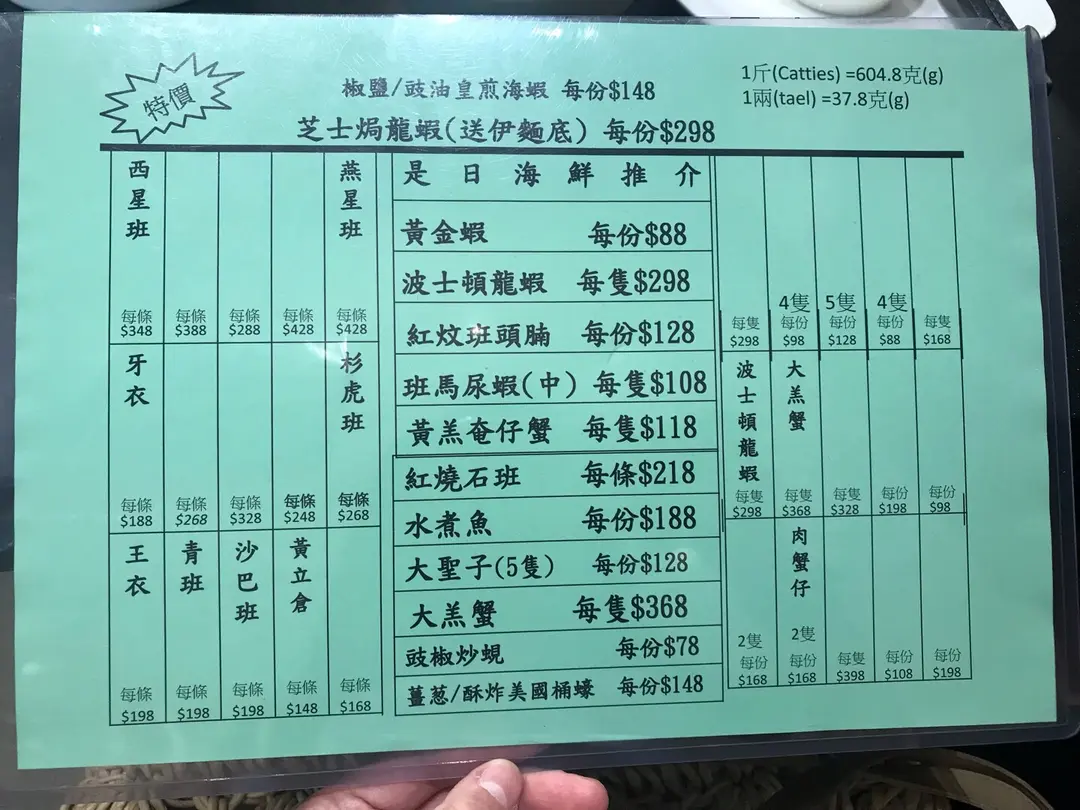 特價
椒鹽/豉油皇煎海蝦 每份$148
芝士焗龍蝦(送伊麵底) 每份$298
1斤(Catties) =604.8克(g)
1兩(tael) =37.8克(g)
西星班 每條 $348
每條 $388
每條 $288
每條 $428
燕星班 每條 $428
牙衣 每條 $188
每條 $268
每條 $328
每條 $248
杉虎班 每條 $268
王衣 每條 $198
青班 每條 $198
沙巴班 每條 $198
黃立倉 每條 $148
每條 $168
是日海鮮推介
黃金蝦 每份$88
波士頓龍蝦 每隻$298
紅炆班頭腩 每份$128
班馬尿蝦(中) 每隻$108
黃羔奄仔蟹 每隻$118
紅燒石班 每條$218
水煮魚 每份$188
大聖子(5隻) 每份$128
大羔蟹 每隻$368
豉椒炒蜆 每份$78
薑葱/酥炸美國桶蠔 每份$148
每隻 $298
4隻 每份 $98
5隻 每份 $128
4隻 每份 $88
每隻 $168
波士頓龍蝦 每隻 $298
大羔蟹 每隻 $368
每隻 $328
每份 $198
每份 $98
2隻 每份 $168
肉蟹仔 2隻 每份 $168
每隻 $398
每份 $108
每份 $198